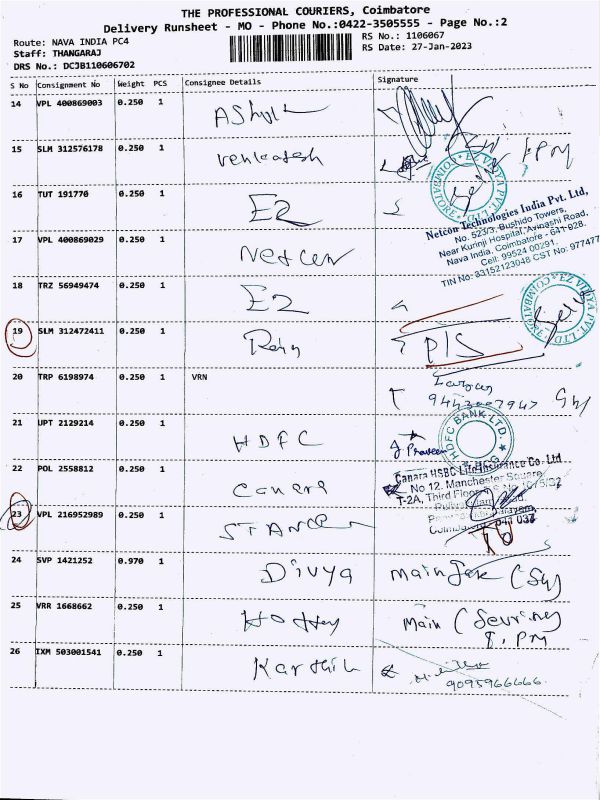 THE PROFESSIONAL COURIERS, Coimbatore
Delivery Runsheet - MO - Phone No.:0422-3505555 - Page No.:2
Route: NAVA INDIA PC4
RS No.: 1106067
Staff: THANGARAJ
RS Date: 27-Jan-2023
DRS No.: DCJB110606702
S No Consignment No Weight PCS Consignee Details Signature
14 VPL 400869003 0.250 1 AShok
15 SLM 312576178 0.250 1 Venkatesh
16 TUT 191770 0.250 1 EZ
Netcon Technologies India Pvt. Ltd,
No. 523/3, Bushido Towers,
Near Kurinji Hospital, Avinashi Road,
Nava India, Coimbatore - 641 028.
Cell: 99524 00291.
TIN No: 33152123048 CST No: 977477
17 VPL 400869029 0.250 1 Netcon
18 TRZ 56949474 0.250 1 EZ
EZ VIDYA PVT. LTD. COIMBATORE
19 SLM 312472411 0.250 1 P/S
20 TRP 6198974 0.250 1 VRN
9443007947
21 UPT 2129214 0.250 1 HDFC Praveen
HDFC BANK LTD.
22 POL 2558812 0.250 1 Canara
Canara HSBC Life Insurance Co. Ltd
No 12, Manchester Square
T-2A, Third Floor
23 VPL 216952989 0.250 1
24 SVP 1421252 0.970 1 Divya
25 VRR 1668662 0.250 1 Main
26 IXM 503001541 0.250 1 Karthik
9095966666